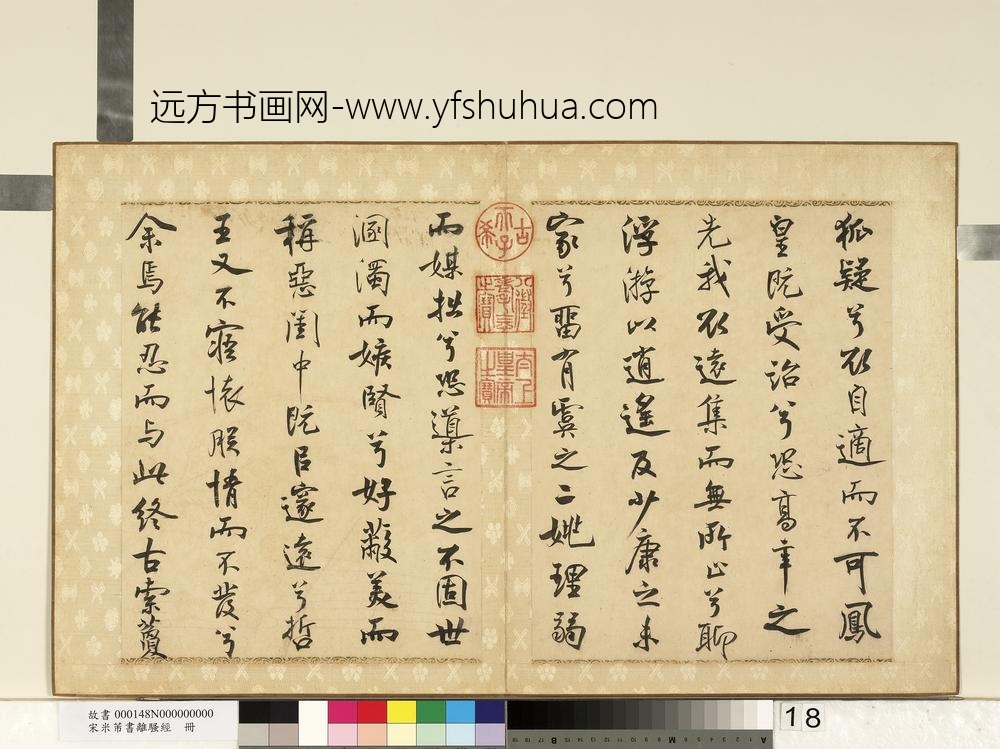 远方书画网-www.yfshuhua.com
狐疑兮欲自適而不可鳳
皇既受詒兮恐高辛之
先我欲遠集而無所止兮聊
浮游以逍遙及少康之未
家兮畱有虞之二姚理弱
古希天子
八徵耄念之寶
太上皇帝之寶
而媒拙兮恐導言之不固世
溷濁而嫉賢兮好蔽美而
稱惡閨中既㠯邃遠兮哲
王又不寤懷朕情而不發兮
余焉能忍而与此終古索藑
故書 000148N000000000
宋米芾書離騷經 冊
18